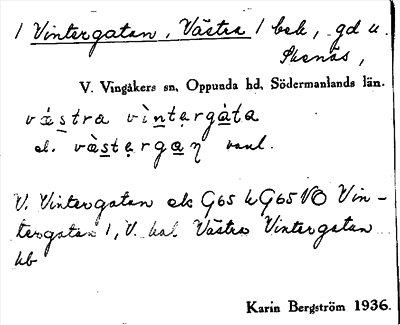 / Vintergatan, Västra / bek, gd u.
Skenäs,
V. Vingåkers sn, Oppunda hd, Södermanlands län.
västra vìntẹrgàta
el. vàstẹrgaη vanl.
V. Vintergatan ek G65 hG65NO Vin-
tergatan 1, V. kal. Västra Vintergatan
hb
Karin Bergström 1936.